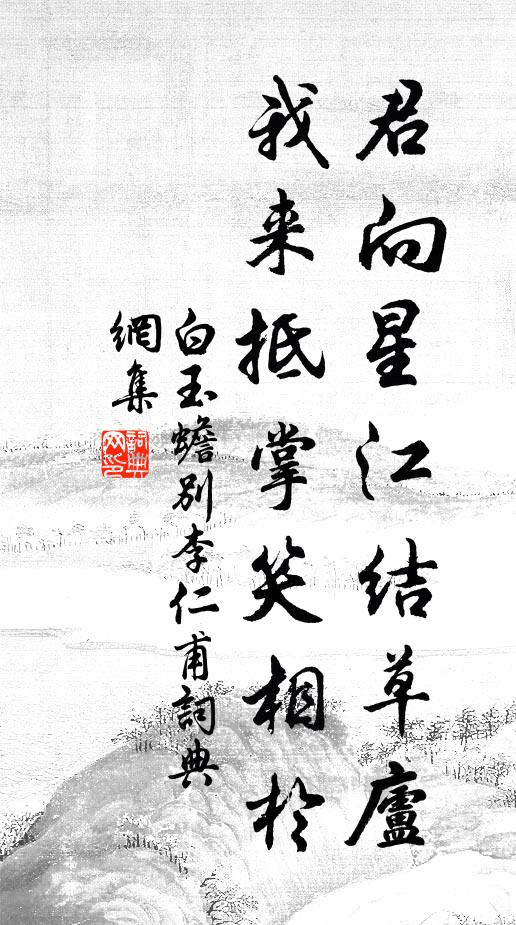 君向星江结草廬
我来抵掌笑相於
白玉蟾别李仁甫詞典
網集
詞典网印